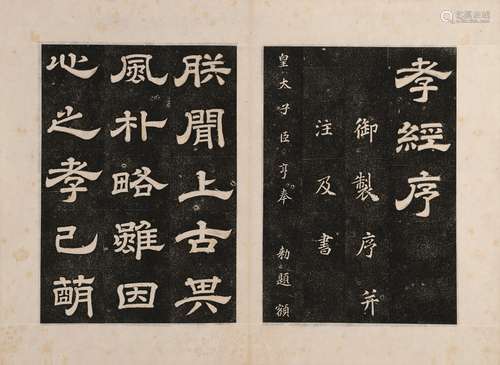 孝經序
御製序并
注及書
皇太子臣亨奉 勅題額
朕聞上古其
風朴略雖因
心之孝已萌